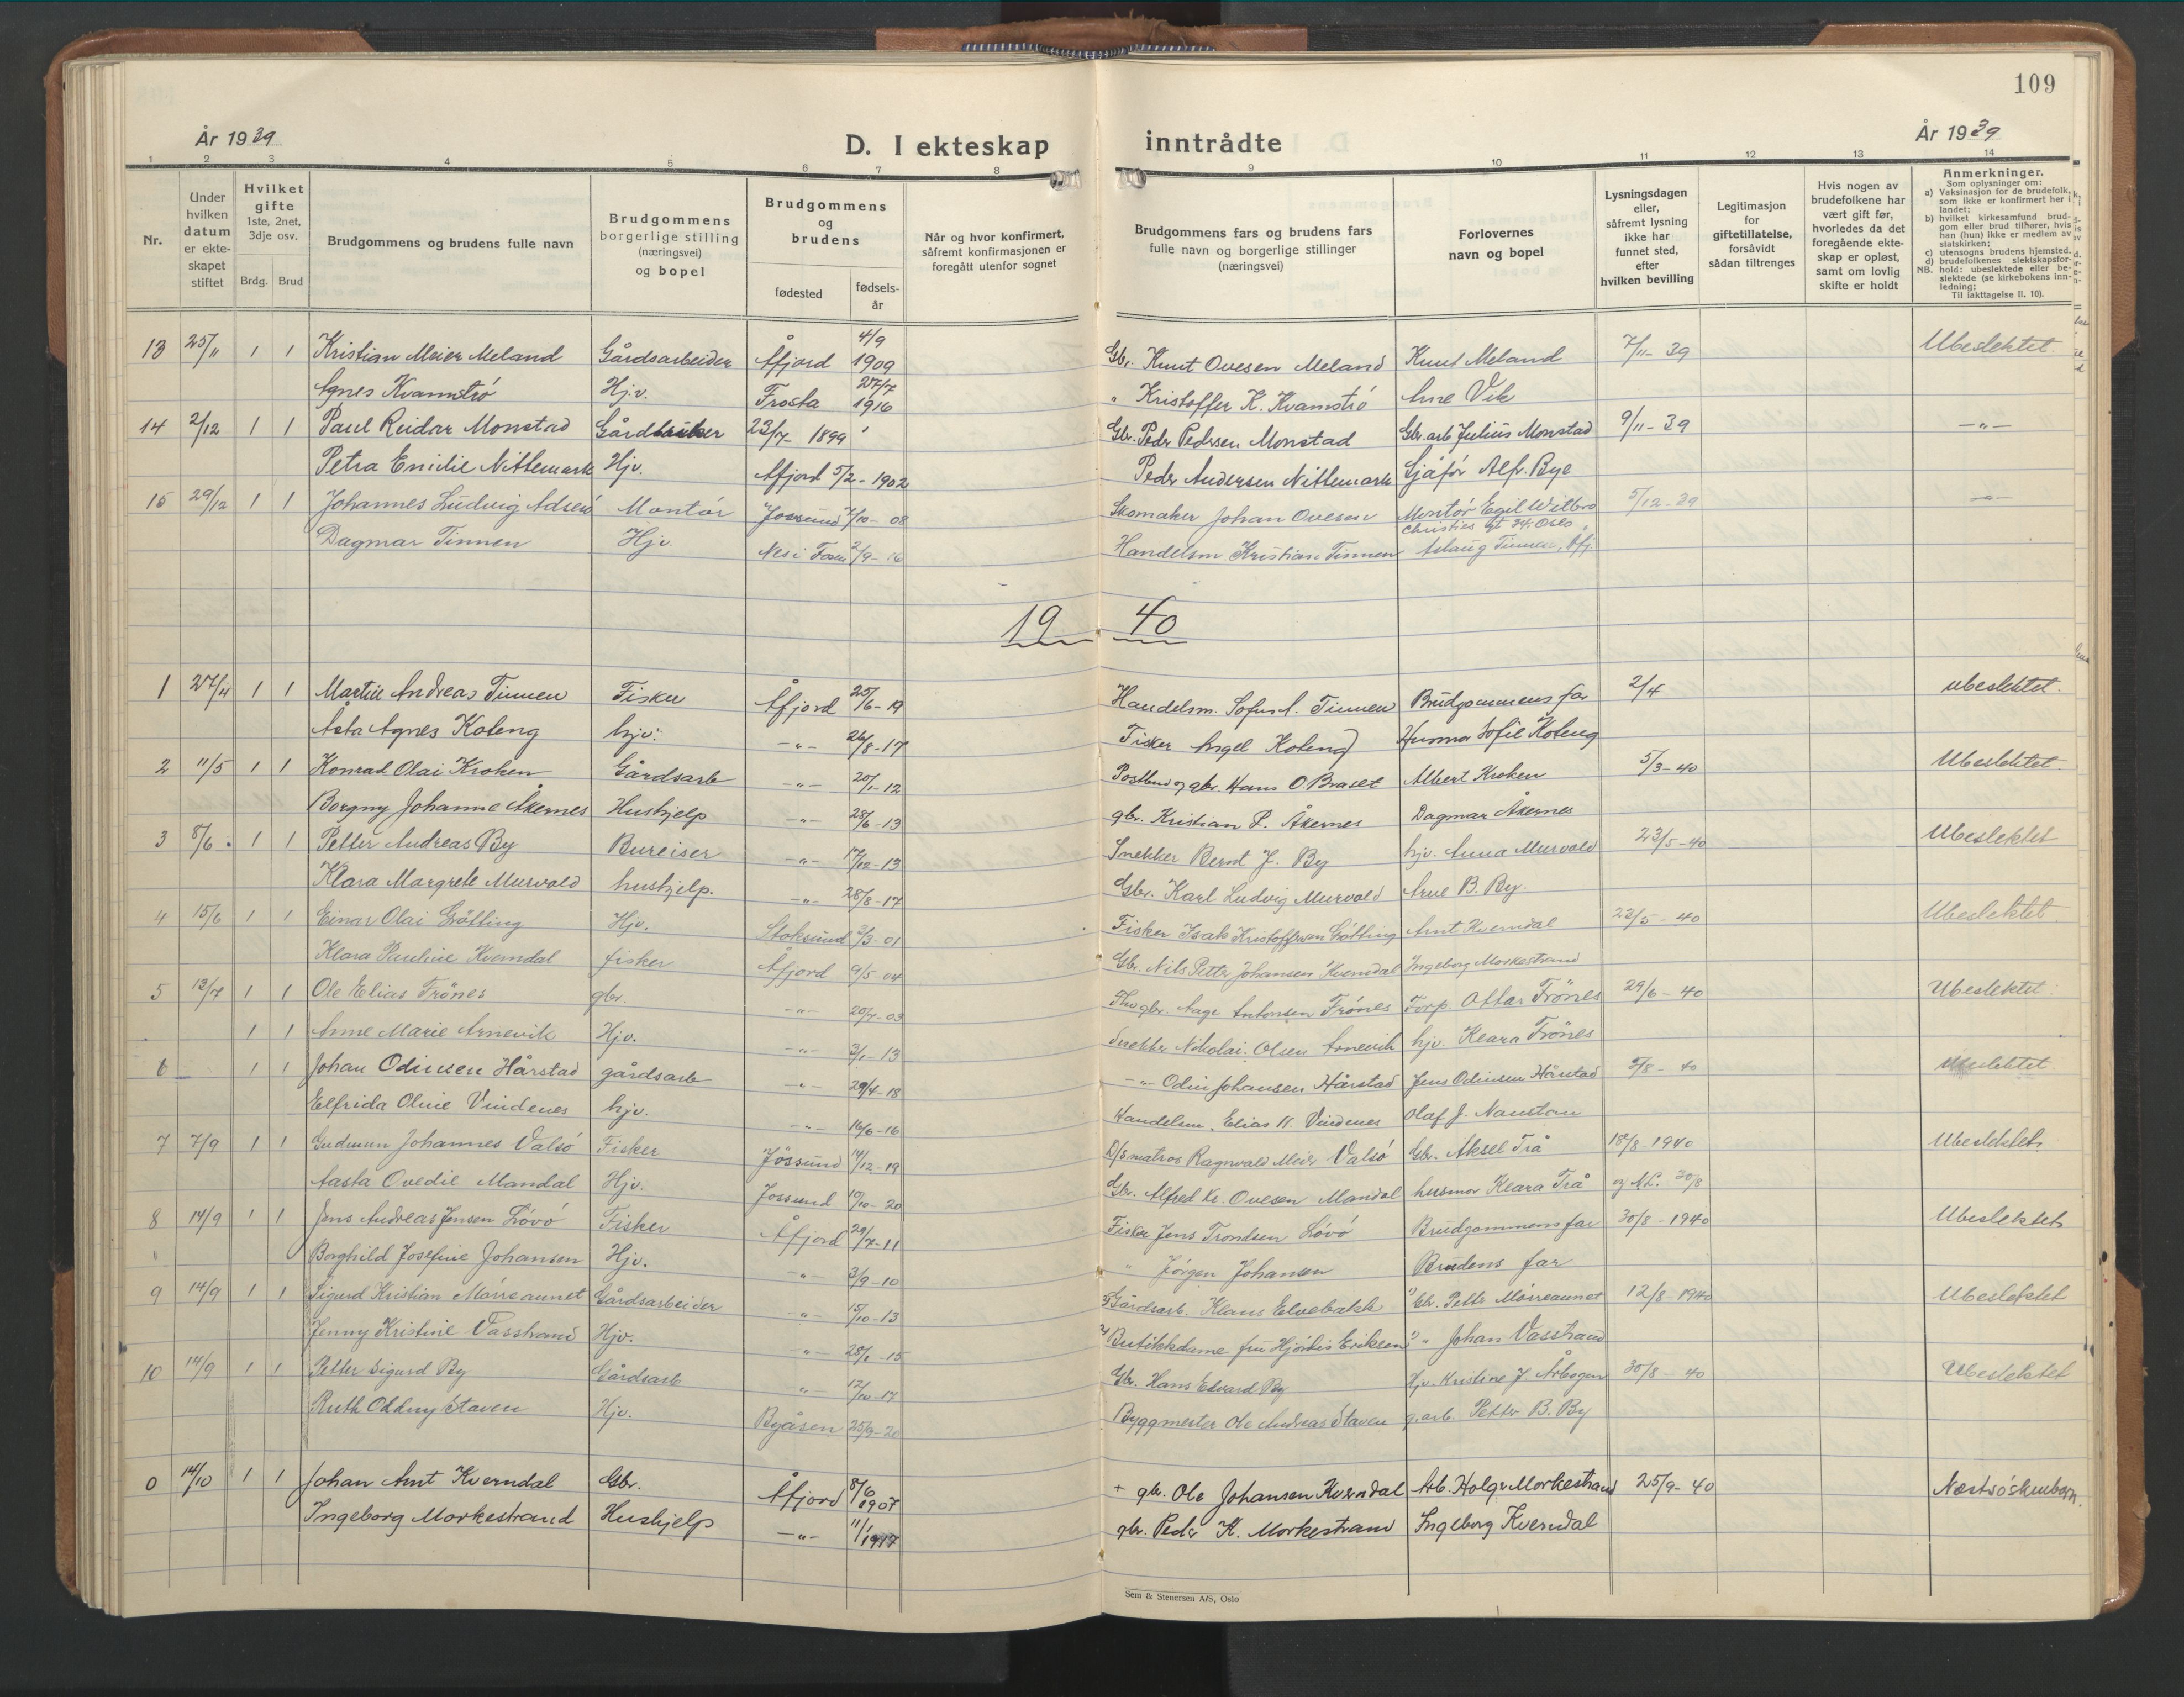 109
År 1939
D. I ekteskap inntrådte
År 1939
1 2 3 4 5 6 7 8 9 10 11 12 13 14
Nr.
Under hvilken datum er ekteskapet stiftet
Hvilket gifte 1ste, 2net, 3dje osv.
Brdg. Brud
Brudgommens og brudens fulle navn
Brudgommens borgerlige stilling (næringsvei) og bopel
Brudgommens og brudens
fødested
fødselsår
Når og hvor konfirmert, såfremt konfirmasjonen er foregått utenfor sognet
Brudgommens fars og brudens fars fulle navn og borgerlige stillinger (næringsvei)
Forlovernes navn og bopel
Lysningsdagen eller, såfremt lysning ikke har funnet sted, efter hvilken bevilling
Legitimasjon for giftetillatelse, forsåvidt sådan tiltrenges
Hvis nogen av brudefolkene har vært gift før, hvorledes da det foregående ekteskap er opløst, samt om lovlig skifte er holdt
Anmerkninger.
Som oplysninger om:
a) Vaksinasjon for de brudefolk, som ikke er konfirmert her i landet;
b) hvilket kirkesamfund brudgom eller brud tilhører, hvis han (hun) ikke er medlem av statskirken;
c) utensogns brudens hjemsted.
d) brudefolkenes slektskapsforhold: ubeslektede eller beslektede (se kirkebokens innledning;
NB.
Til iakttagelse II. 10).
13 25/11 1 1 Kristian Meier Meland Gårdsarbeider Åfjord 4/9 1909 Gbr. Knut Ovesen Meland Knut Meland 7/11-39 Ubeslektet.
Agnes Kvamströ Hjv. Frosta 27/7 1916 " Kristoffer K. Kvamströ Arne Vik
14 2/12 1 1 Paul Reidar Monstad Gårdbruker 23/7- 1899 Gbr. Peder Pedersen Monstad Gbr. arb Julius Monstad 9/11-39 -"-
Petra Emilie Nittemark Hjv. Åfjord 5/2-1902 Peder Andersen Nittemark Sjåför Alf. Bye
15 29/12 1 1 Johannes Ludvig Adsen Montör Jössund 7/10-08 Skomaker Johan Ovesen Montör Egil Wilbro Christies gt 34. Oslo 5/12-39 -"-
Dagmar Tinnen Hjv Nes i Fosen 2/9-16 Handelsm Kristian Tinnen Aslaug Tinnen, Åfj
19 40
1 27/4 1 1 Martin Andreas Tinnen Fisker Åfjord 25/6-19 Handelsm. Sofus A. Tinnen Brudgommens far 2/4 ubeslektet.
Asta Agnes Koteng hjv. -"- 26/8-17 Fisker Angel Koteng Husmor Sofie Koteng
2 11/5 1 1 Konrad Olai Kroken Gårdsarb -"- 20/1-12 Postbud og gbr. Hans O Braset Albert Kroken 5/3-40 Ubeslektet.
Borgny Johanne Åkernes Hushjelp -"- 28/6-13 gbr. Kristian P. Åkernes Dagmar Åkernes
3 8/6. 1 1 Petter Andreas By Bureiser -"- 17/10-13 Snekker Bernt J. By hjv. Anna Murvold 23/5-40 Ubeslektet
Klara Margrete Murvold hushjelp. -"- 28/8-17 Gbr. Karl Ludvig Murvold Arne B. By.
4 15/6 1 1 Einar Olai Götting Hjv. Stoksund 3/3-01 Fisker Isak Kristoffersen Götting Arnt Kverndal 23/5-40 Ubeslektet.
Klara Pauline Kverndal fisker Åfjord 9/5-04 Gbr. Nils Petter Johansen Kverndal Ingeborg Morkestrand
5 13/7 1 1 Ole Elias Frönes gbr. -"- 20/7-03 gbr. Aage Antonsen Frönes Forp. Ottar Frönes 29/6-40 Ubeslektet.
1 1 Anne Marie Arnevik Hjv. -"- 3/1-13 Snekker Nikolai Olsen Arnevik hjv. Klara Frönes
6 - 1 1 Johan Odinsen Hårstad gårdsarb -"- 29/4-18 -"- Odin Johansen Hårstad Jens Odinsen Hårstad 5/8-40 ubeslektet.
Elfrida Oline Vindenes hjv. -"- 16/6-16 Handelsm. Elias N. Vindenes Olaf J. Naustan
7 7/9 1 1 Gudmun Johannes Valsö Fisker Jössund 14/12-19 D/S matros Ragnvald Meier Valsö Gbr. Aksel Trå 18/8 1940 Ubeslektet.
Aasta Ovedie Mandal Hjv. Jössund 10/10-20 Gbr. Alfred Kr. Ovesen Mandal husmor Klara Trå og N.L. 30/8
8 14/9 1 1 Jens Andreas Jensen Lövö Fisker Åfjord 29/7-11 Fisker Jens Trondsen Lövö Brudgommens far 30/8-1940 Ubeslektet
Borghild Josefine Johansen Hjv. -"- 3/9-10 " Jörgen Johansen Brudens far
9 14/9 1 1 Sigurd Kristian Mörreaunet Gårdsarbeider -"- 15/10-13 Gårdsarb. Klaus Elvebakk Gbr. Petter Mörreaunet 12/8-1940 Ubeslektet
Jenny Kristine Vasstrand Hjv. -"- 28/1-15 Butikkdame fru Hjördis Eriksen " Johan Vasstrand
10 14/9 1 1 Petter Sigurd By Gårdsarb " 12/10-17 Gbr. Hans Edvard By Hjv. Kristine J. Årbogen 30/8-40 Ubeslektet
Ruth Oddny Staven Hjv. Byåsen 25/9-20 Byggmester Ole Andreas Staven g.arb. Petter B. By
0 14/10 1 1 Johan Arnt Kverndal Gbr. Åfjord 8/6 1907 + gbr. Ole Johansen Kverndal Arb. Holger Morkestrand 25/9-40 Næstsöskenbarn.
Ingeborg Morkestrand Hushjelp -"- 11/1 1917 gbr. Peder K. Morkestrand Ingeborg Kverndal
Sem & Stenersen A/S, Oslo